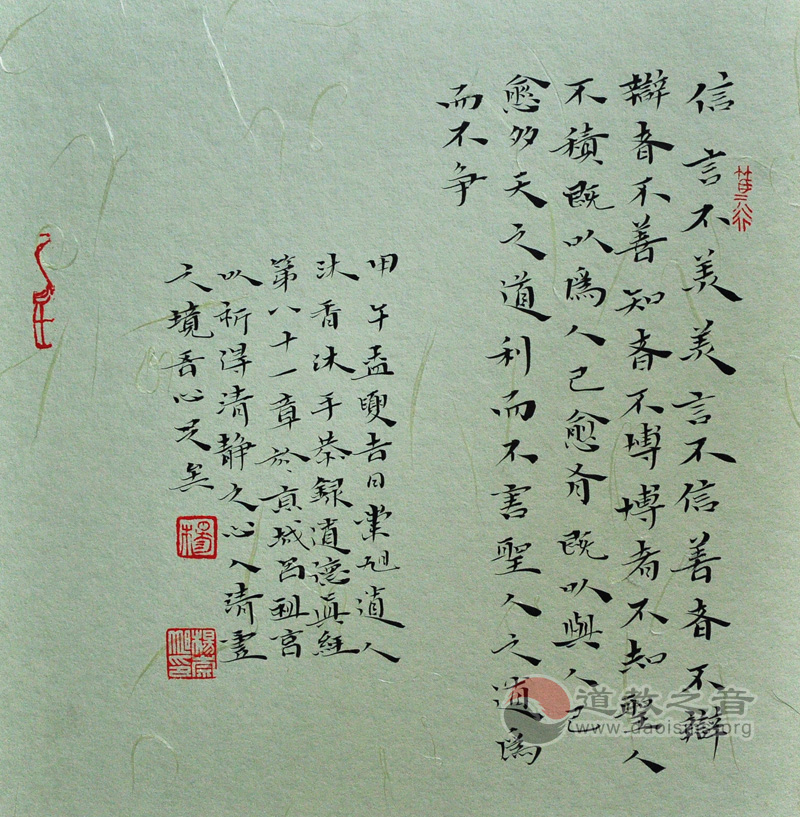 信言不美美言不信善者不辯
辯者不善知者不博博者不知聖人
不積既以爲人己愈有既以與人己
愈多天之道利而不害聖人之道爲
而不争
甲午孟夏吉日旭道人
沐香沐手恭録道德真經
第八十一章於京城呂祖宫
以祈得清静之心入清虚
之境吾心足矣
楊
道教之音
www.daoisms.org